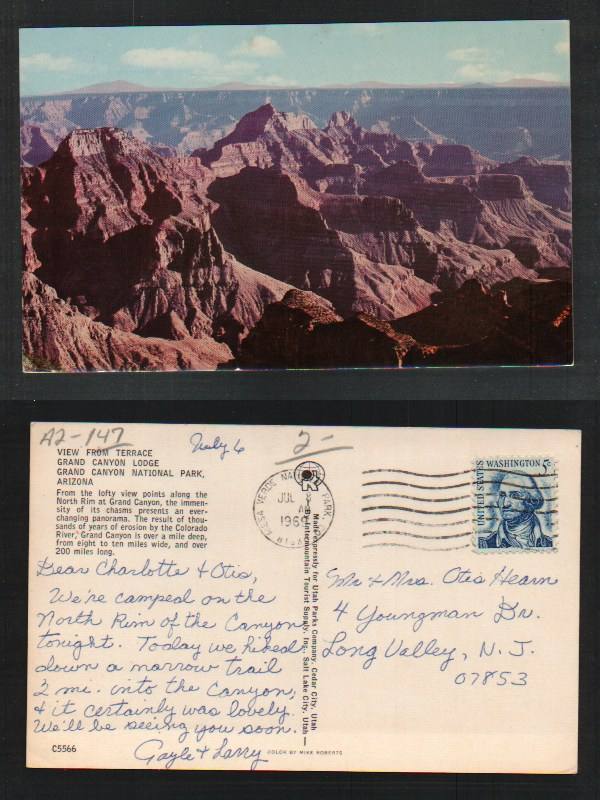 A2-147
July 6
2-
VIEW FROM TERRACE
GRAND CANYON LODGE
GRAND CANYON NATIONAL PARK,
ARIZONA
From the lofty view points along the
North Rim at Grand Canyon, the immen-
sity of its chasms presents an ever-
changing panorama. The result of thou-
sands of years of erosion by the Colorado
River, Grand Canyon is over a mile deep,
from eight to ten miles wide, and over
200 miles long.
Dear Charlotte & Otis,
We're camped on the
North Rim of the Canyon
tonight. Today we hiked
down a narrow trail
2 mi. into the Canyon,
& it certainly was lovely.
We'll be seeing you soon.
Gayle & Larry
C5566
COLOR BY MIKE ROBERTS
Made expressly for Utah Parks Company, Cedar City, Utah
Intermountain Tourist Supply, Inc., Salt Lake City, Utah
MESA VERDE NAT. PARK,
JUL
AM
UNITED STATES
WASHINGTON 5c
Mr & Mrs. Otis Hearn
4 Youngman Dr.
Long Valley, N. J.
07853